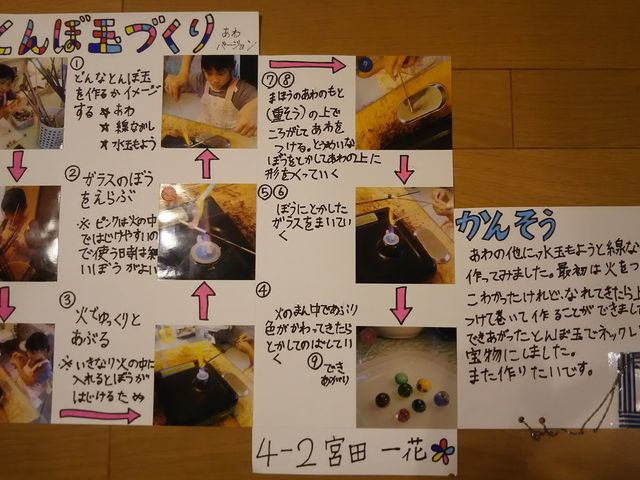 とんぼ玉づくり
あわ
バージョン
①
どんなとんぼ玉
を作るかイメージ
する ★あわ
★線ながし
★水玉もよう
② ガラスのぼう
をえらぶ
※ピンクは火の中
ではじけやすいの
で使う日時は細
いぼうがよい
③ 火でゆっくりと
あぶる
※いきなり火の中に
入れるとぼうが
はじけるため
④
火のまん中であぶり
色がかわってきたら
とかしてのばしてい
く
⑤⑥
ぼうにとかした
ガラスをまいてい
く
⑦⑧
まほうのあわのもと
(重そう)の上で
ころがしてあわを
つける。とうめいな
ぼうをとかしてあわの上に
形をつくっていく
⑨でき
あがり
4-2 宮田 一花
かんそう
あわの他に、水玉もようと線な
作ってみました。最初は火をつ
こわかったけれど、なれてきたら上
つけて巻いて作ることができまし
できあがったとんぼ玉でネックレ
宝物にしました。
また作りたいです。